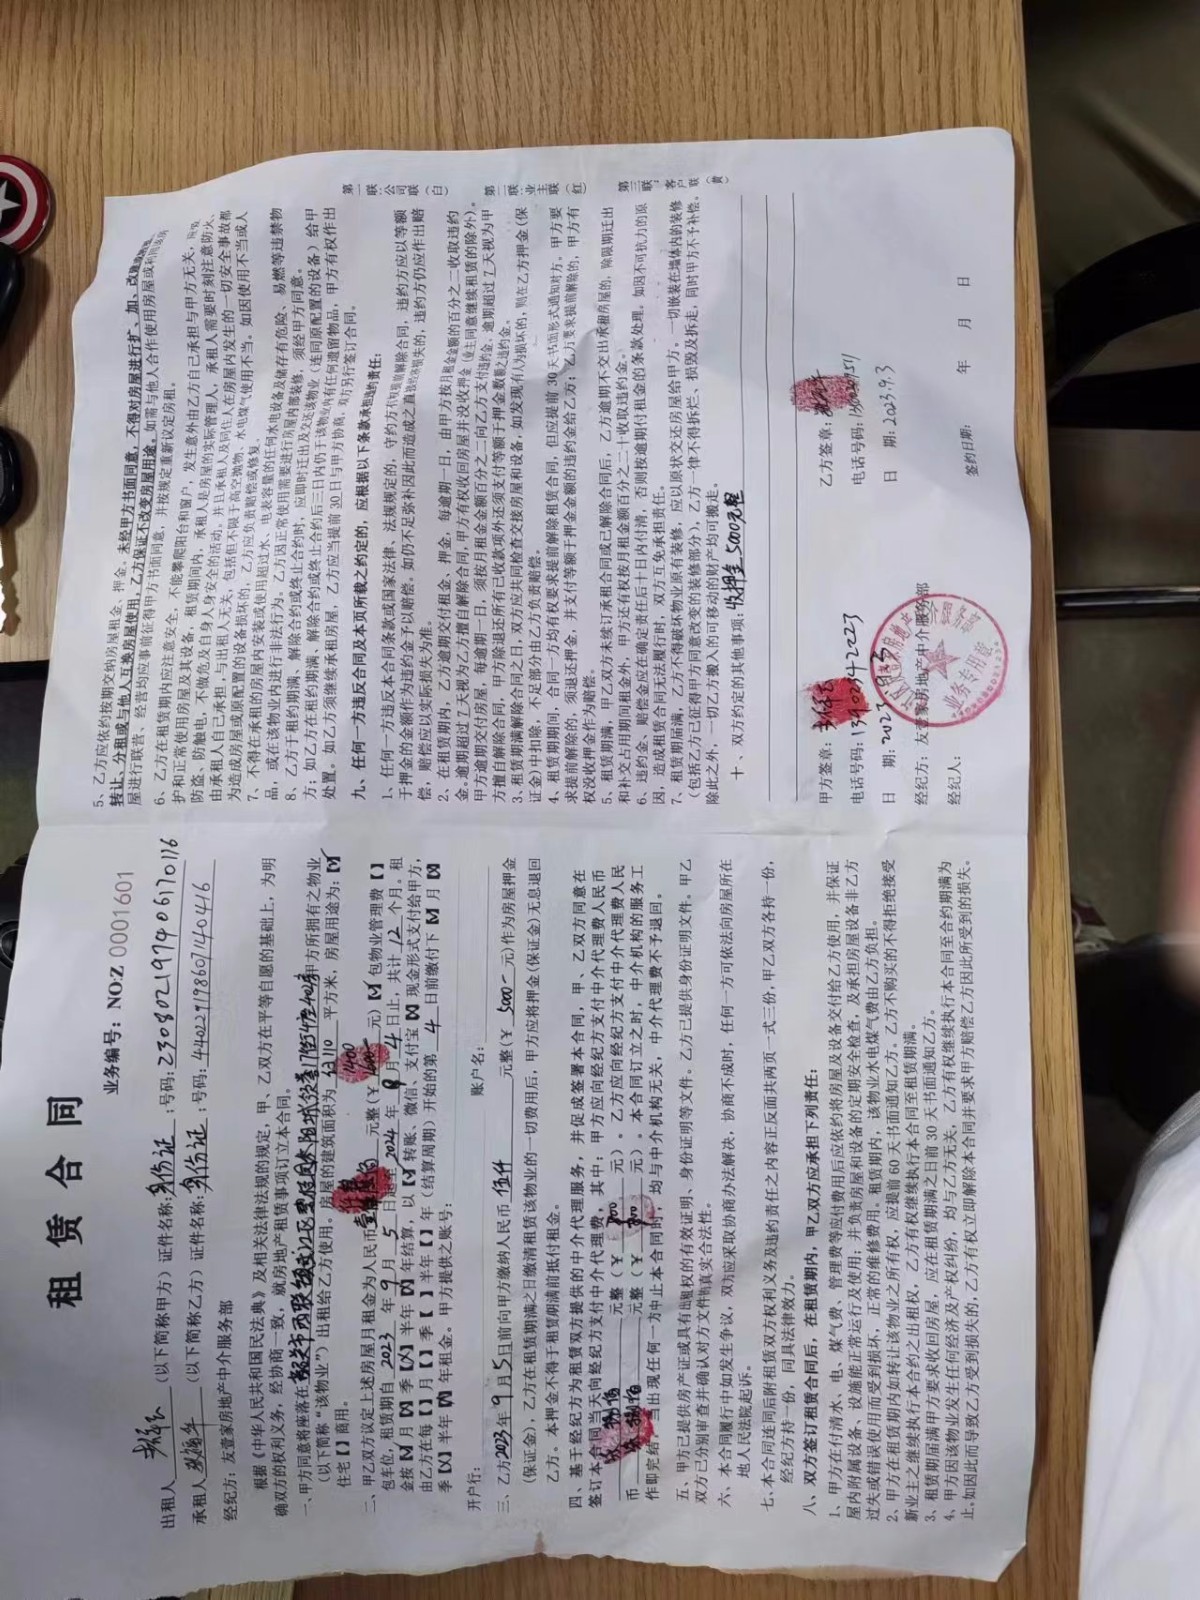 租赁合同
业务编号：NO:Z 0001601
出租人（以下简称甲方）证件名称：身份证：号码：230802197406170116
承租人（以下简称乙方）证件名称：身份证：号码：440221198607140416
经纪方：友壹家房地产中介服务部
根据《中华人民共和国民法典》及相关法律法规的规定，甲、乙双方在平等自愿的基础上，为明
确双方的权利义务，经协商一致，就房地产租赁事项订立本合同。
一、甲方同意将座落在 甲方所拥有之物业
（以下简称“该物业”）出租给乙方使用。房屋的建筑面积为 110 平方米，房屋用途为：【✓】
住宅【】商用。
二、甲乙双方议定上述房屋月租金为人民币 元整（￥ 1400 元）【✓】包物业管理费【】
包车位，租赁期自2023年9月5日起至2024年9月4日止，共计12个月。租
金按【X】月【X】季【X】半年【X】年结算，以【✓】转账、微信、支付宝【X】现金形式支付给甲方，
由乙方在每【】月【】季【】半年【】年（结算周期）开始的第4日前缴付下【X】月【X】
季【X】半年【X】年租金。甲方提供之账号：
开户行： 账户名：
三、乙方2023年9月5日前向甲方缴纳人民币 伍仟 元整（￥5000元）作为房屋押金
（保证金），乙方在租赁期满之日缴清租赁该物业的一切费用后，甲方应将押金（保证金）无息退回
乙方。本押金不得于租赁期满前抵付租金。
四、基于经纪方为租赁双方提供的中介代理服务，并促成签署本合同，甲、乙双方同意在
签订本合同当天向经纪方支付中介代理费，其中：甲方应向经纪方支付中介代理费人民币
元整（￥ 700 元）。乙方应向经纪方支付中介代理费人民
币 元整（￥ 700 元）。本合同订立之时，中介机构的服务工
作即完结，当出现任何一方中止本合同时，均与中介机构无关，中介代理费不予退回。
五、甲方已提供房产证或具有出租权的有效证明、身份证明等文件。乙方已提供身份证明文件。甲乙
双方已分别审查并确认对方文件的真实合法性。
六、本合同履行中如发生争议，双方应采取协商办法解决，协商不成时，任何一方可依法向房屋所在
地人民法院起诉。
七、本合同连同后附租赁双方权利义务及违约责任之内容正反面共两页一式三份，甲乙双方各持一份，
经纪方持一份，同具法律效力。
八、双方签订租赁合同后，在租赁期内，甲乙双方应承担下列责任：
1、甲方在付清水、电、煤气费、管理费等应付费用后应依约将房屋及设备交付给乙方使用，并保证
屋内附属设备、设施能正常运行及使用；并负责房屋和设备的定期安全检查，及承担房屋设备非乙方
过失或错误使用而受到损坏，正常的维修费用。租赁期内，该物业水电煤气费由乙方负担。
2、甲方在租赁期内如转让该物业之所有权，应提前60天书面通知乙方。乙方不购买的不得拒绝接受
新业主之继续执行本合约之出租权，乙方有权继续执行本合同至租赁期满。
3、租赁期届满甲方要求收回房屋，应在租赁期满之日前30天书面通知乙方。
4、甲方因该物业发生任何经济及产权纠纷，均与乙方无关，乙方有权继续执行本合同至合约期满为
止，如因此而导致乙方受到损失的，乙方有权立即解除本合同并要求甲方赔偿乙方因此所受到的损失。
5、乙方应依约按期交纳房屋租金、押金。未经甲方书面同意，不得对房屋进行扩、加、改
转让、分租或与他人互换房屋使用，乙方保证不改变房屋用途。如需与他人合作使用房屋或利用该房
屋进行联营、经营均应事前征得甲方书面同意，并按规定重新议定房租。
6、乙方在租赁期内应注意安全，不能攀爬阳台和窗户，发生意外由乙方自己承担与甲方无关，
护和正常使用房屋及其设备，租赁期间内，承租人是房屋的实际管理人，承租人需要时刻注意防火、
防盗、防触电，不做危及自身人身安全的活动。并且承租人及同住人在房屋内发生的一切安全事故都
由承租人自己承担，与出租人无关，包括但不限于高空抛物、水电煤气使用不当。如因使用不当或人
为造成房屋或原配置的设备损坏的，乙方应负责赔偿或修复。
7、不得在承租的房屋内安装或使用超过水、电表容量的任何水电设备及储存有危险、易燃等违禁物
品，或在该物业内进行非法行为。乙方因正常使用需要进行房屋内部装修，须经甲方同意。
8、乙方于租约期满、解除合约或终止合约时，应即时迁出及交还该物业（连同原配置的设备）给甲
方；如乙方在租约期满、解除合约或终止合约后三日内仍于该物业内有任何遗留物品，甲方有权作出
处置。如乙方须继续承租房屋，乙方应当提前30日与甲方协商，双方另行签订合同。
九、任何一方违反合同及本页所载之约定的，应根据以下条款承担违约责任：
1、任何一方违反本合同条款或国家法律、法规规定的，守约方有权提前解除合同，违约方应以等额
于押金的金额作为违约金予以赔偿。如仍不足弥补因此而造成之直接经济损失的，违约方仍应作出赔
偿，赔偿应以实际损失为准。
2、在租赁期内，乙方逾期交付租金、押金，每逾期一日，由甲方按月租金金额的百分之二收取违约
金。逾期超过7天视为乙方擅自解除合同，甲方有权收回房屋并没收押金（业主同意继续租赁的除外）。
甲方逾期交付房屋，每逾期一日，须按月租金金额百分之二向乙方支付违约金。逾期超过7天视为甲
方擅自解除合同，甲方除退还所有已收款项外还须支付等额于押金数额之违约金。
3、租赁期满解除合同之日，双方应共同检查交接房屋和设备，如发现有人为损坏的，则在乙方押金（保
证金）中扣除，不足部分由乙方负责赔偿。
4、租赁期期间，合同一方均有权要求提前解除租赁合同，但应提前30天书面形式通知对方，甲方要
求提前解除的，须退还押金，并支付等额于押金金额的违约金给乙方；乙方要求提前解除的，甲方有
权没收押金作为赔偿。
5、租赁期满，甲乙双方未续订承租合同或已解除合同后，乙方逾期不交出承租房屋的，除限期迁出
和补交占用期间租金外，甲方还有权按月租金额百分之二十收取违约金。
6、违约金、赔偿金应在确定责任后十日内付清，否则按逾期付租金的条款处理。如因不可抗力的原
因，造成租赁合同无法履行时，双方互免承担责任。
7、租赁期届满，乙方不得破坏物业原有装修，应以原状交还房屋给甲方。一切嵌装在墙体内的装修
（包括乙方已征得甲方同意改变的装修部分），乙方一律不得拆烂、损毁及拆走，同时甲方不予补偿。
除此之外，一切乙方搬入的可移动的财产均可搬走。
十、双方约定的其他事项：收押金5000元整
甲方签章： 乙方签章：
电话号码：13102342223 电话号码：
日 期：2023.9.3 日 期：2023.9.3
经纪方：友壹家房地产中介服务部
经纪人： 签约日期： 年 月 日
业务专用章
第一联 公司联（白）
第二联 业主联（红）
第三联 客户联（黄）